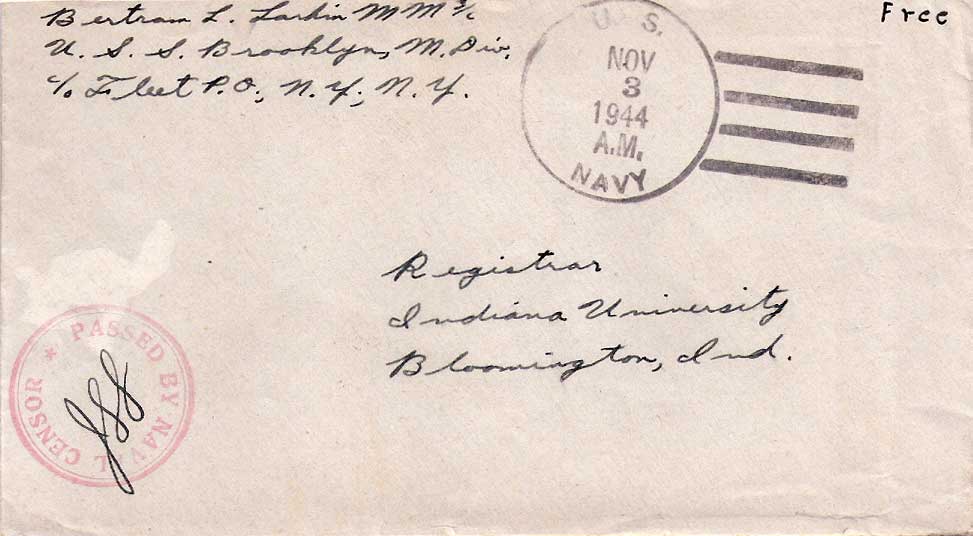 Bertram L. Larkin MM 3/c
U. S. S. Brooklyn, M. Div.
c/o Fleet P.O., N. Y., N. Y.
Free
U. S.
NOV
3
1944
A.M.
NAVY
Registrar
Indiana University
Bloomington, Ind.
PASSED BY NAVAL CENSOR